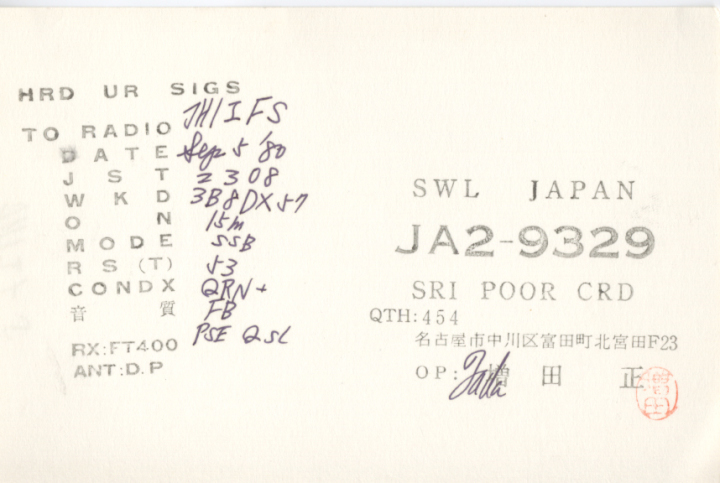 HRD UR SIGS
TO RADIO JH1IFS
DATE Sep 5 '80
JST 2308
WKD 3B8DX 57
ON 15m
MODE SSB
RS(T) 53
CONDX QRN+
音質 FB
PSE QSL
RX:FT400
ANT:D.P
SWL JAPAN
JA2-9329
SRI POOR CRD
QTH:454
名古屋市中川区富田町北宮田F23
OP: 増田 正
増田